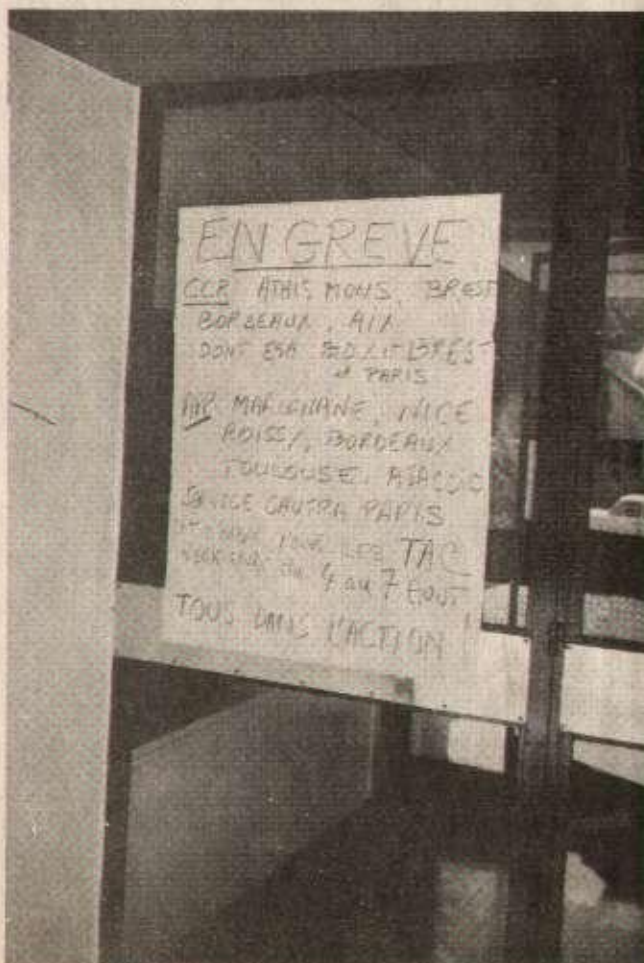 EN GREVE
CCR ATHIS MONS, BREST
BORDEAUX, AIX
DONT ESA BREST
et PARIS
MARIGNANE, NICE
ROISSY, BORDEAUX
TOULOUSE AJACCIO
SERVICE CAUTRA PARIS
POUR LES TAC
du 4 au 7 Aout
TOUS DANS L'ACTION !